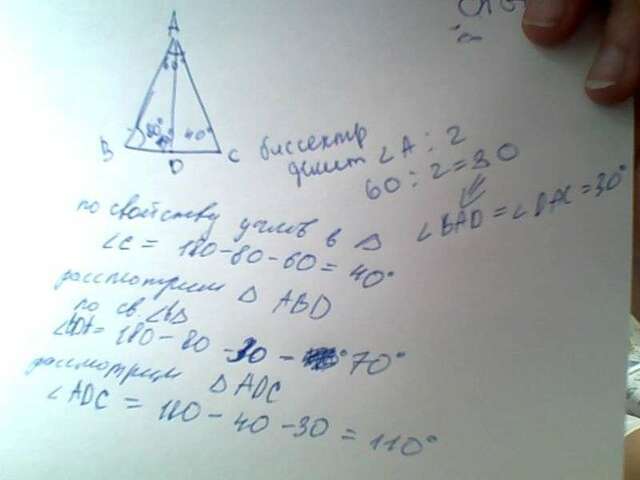 A
60
80°
40°
B
D
C
биссектр
делит ∠A : 2
60 : 2 = 30
∠BAD = ∠DAC = 30°
по свойству углов в △
∠C = 180 - 80 - 60 = 40°
рассмотрим △ ABD
по св. ∠ △
∠BDA = 180 - 80 - 30 - 70°
рассмотрим △ ADC
∠ADC = 180 - 40 - 30 = 110°